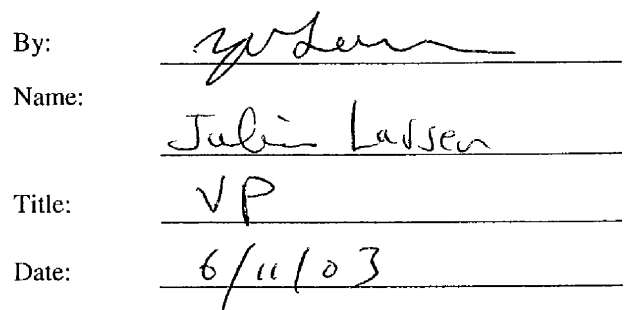 By:
Name:
Julin Larsen
Title: VP
Date: 6/11/03